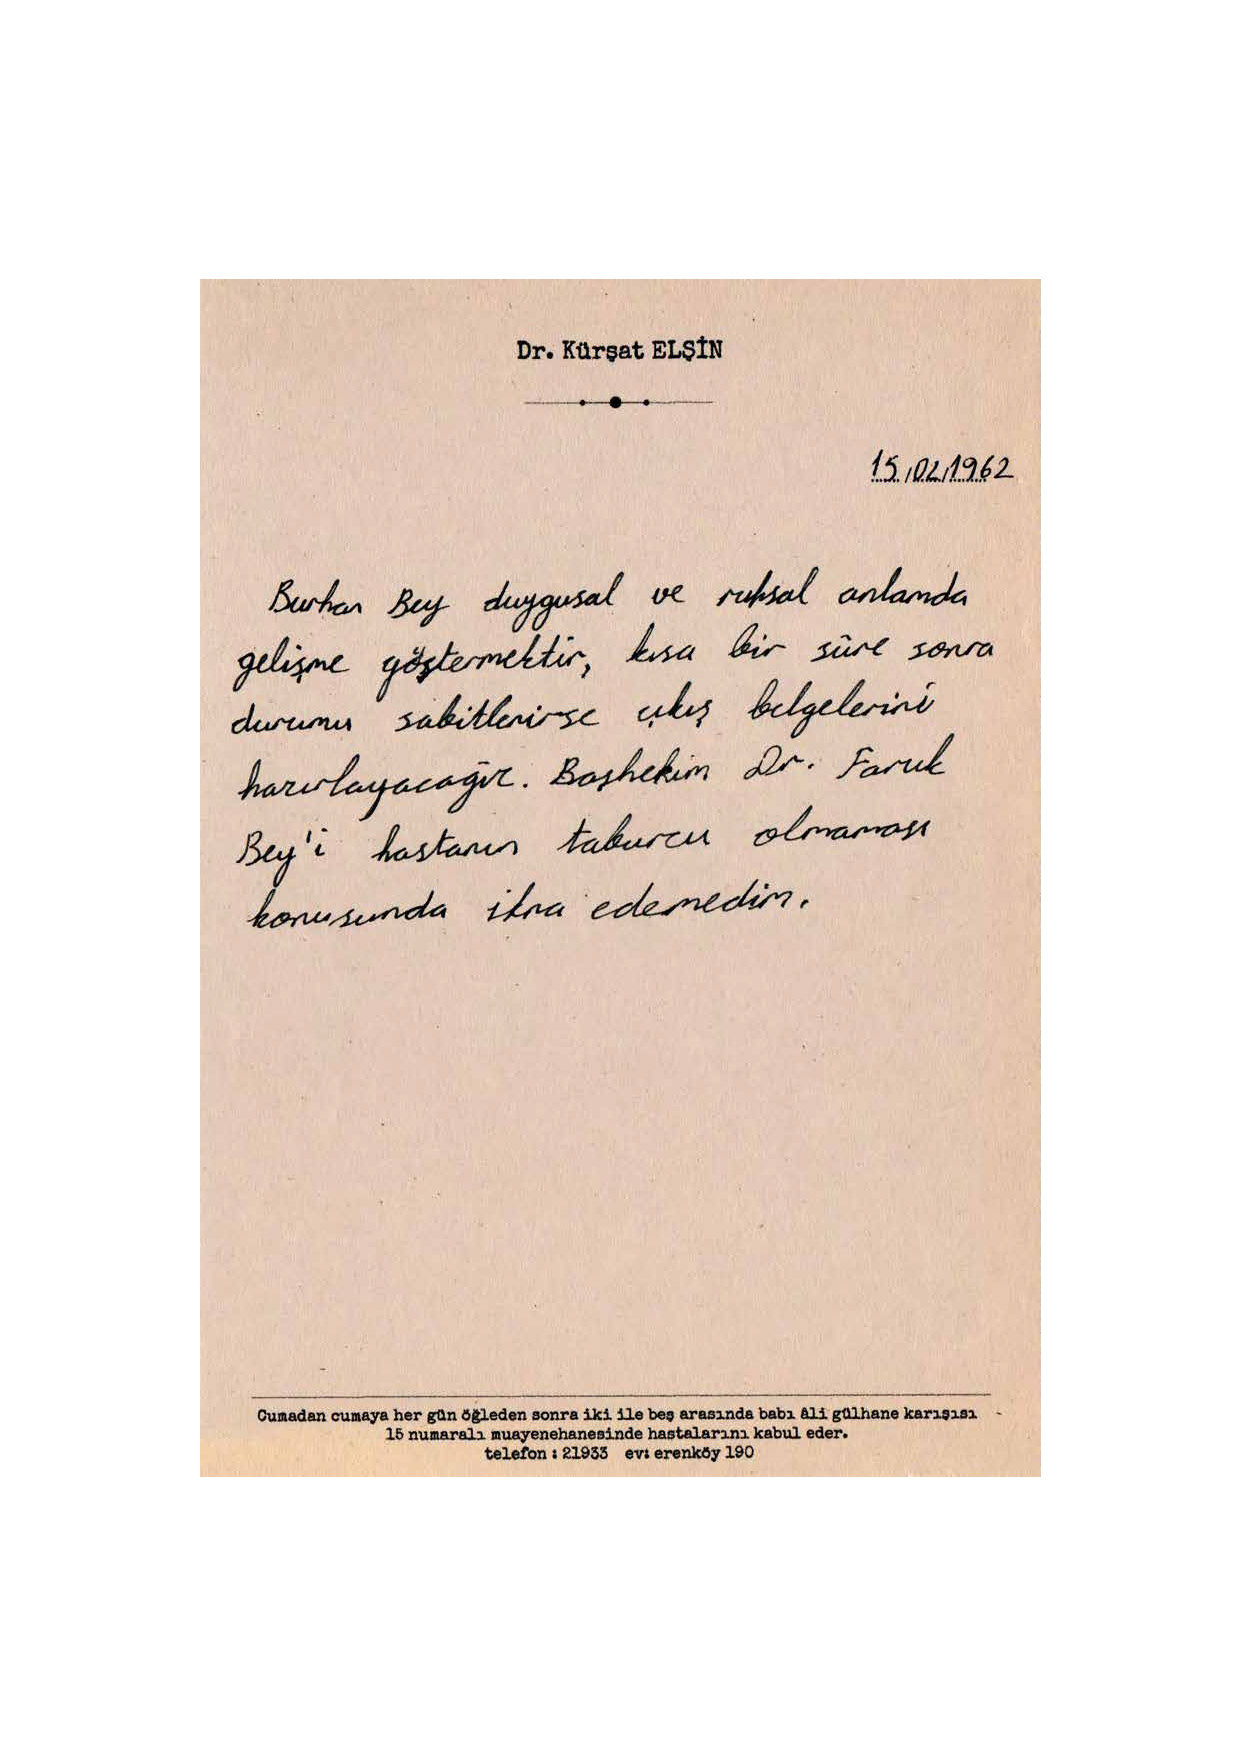 Dr. Kürşat ELŞİN
15/02/1962
Burhan Bey duygusal ve ruhsal anlamda
gelişme göstermektir, kısa bir süre sonra
durumu sabitlenirse çıkış belgelerini
hazırlayacağız. Başhekim Dr. Faruk
Bey'i hastanın taburcu olmaması
konusunda ikna edemedim.
Cumadan cumaya her gün öğleden sonra iki ile beş arasında babı âli gülhane karışısı
15 numaralı muayenehanesinde hastalarını kabul eder.
telefon : 21933 ev: erenköy 190